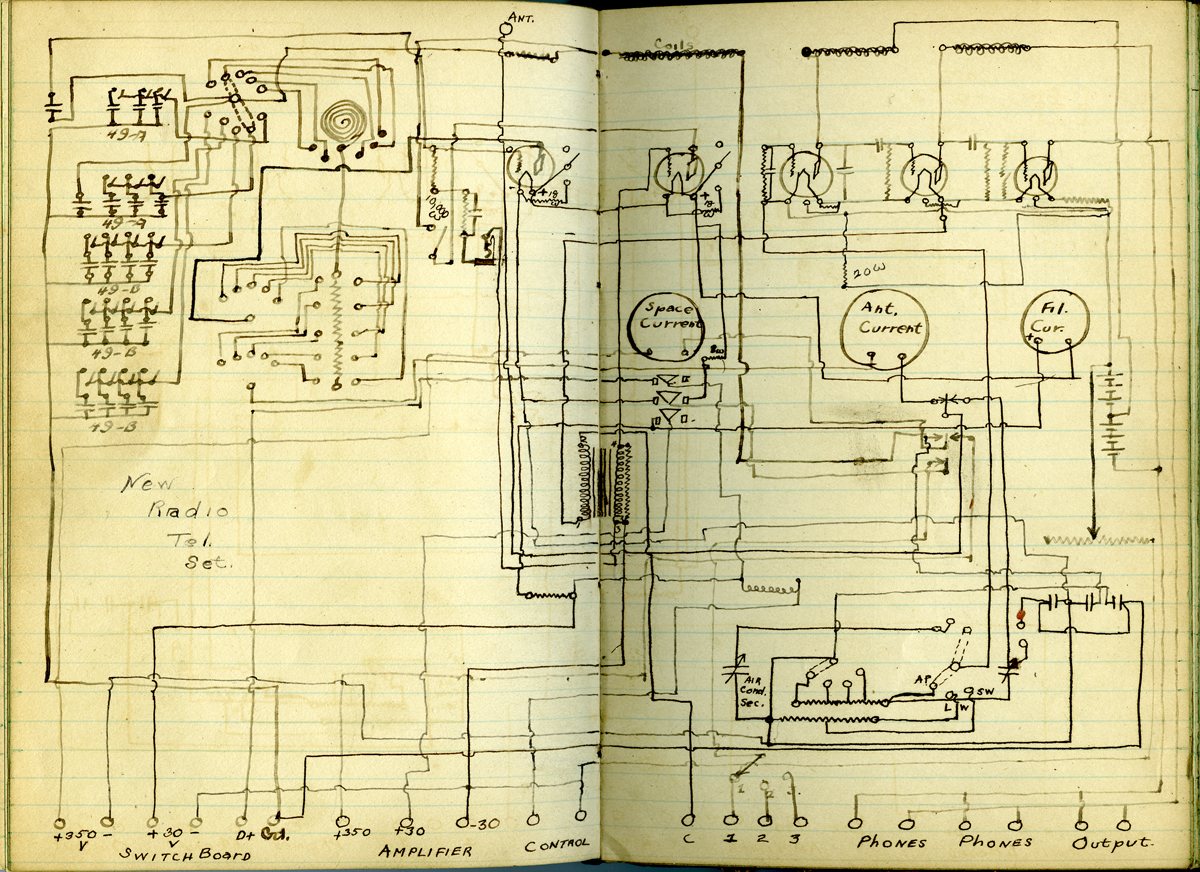 ANT.
Coils
49-A
49-A
49-B
49-B
49-B
+
-
+
+
20 ω
Space
Current
Ant.
Current
Fil.
Cur.
+
New
Radio
Tel.
Set.
AIR
Cond.
Sec.
AP
SW
L W
1 2 3
+350 - +30 - D+ Gd. +350 +30 -30 C 1 2 3 PHONES PHONES Output.
V V
SWITCH BOARD AMPLIFIER CONTROL